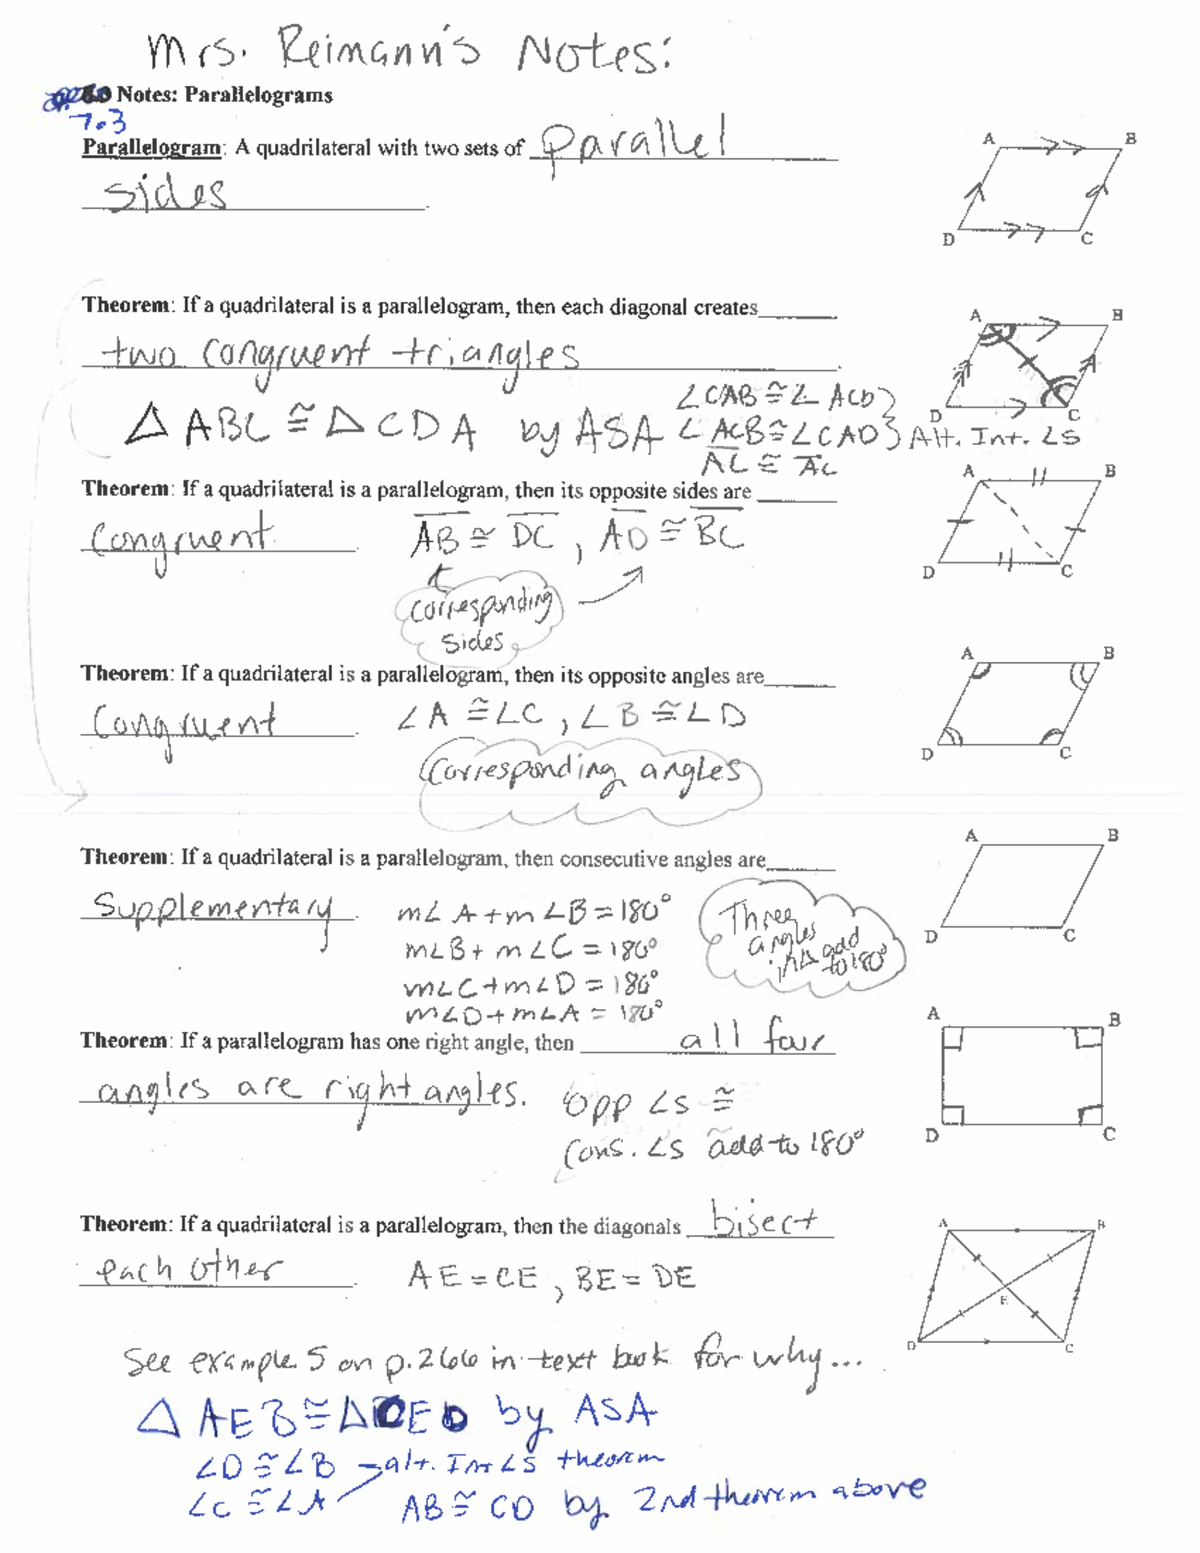 Mrs. Reimann's Notes:
Notes: Parallelograms
7.3
Parallelogram: A quadrilateral with two sets of parallel
sides.
A B
D C
Theorem: If a quadrilateral is a parallelogram, then each diagonal creates
two congruent triangles.
A B
D C
△ABC ≅ △CDA by ASA
∠CAB ≅ ∠ACD
∠ACB ≅ ∠CAD } Alt. Int. ∠s
AC ≅ AC
Theorem: If a quadrilateral is a parallelogram, then its opposite sides are
congruent. AB ≅ DC, AD ≅ BC
corresponding
sides
A B
D C
Theorem: If a quadrilateral is a parallelogram, then its opposite angles are
congruent. ∠A ≅ ∠C, ∠B ≅ ∠D
Corresponding angles
A B
D C
Theorem: If a quadrilateral is a parallelogram, then consecutive angles are
Supplementary. m∠A + m∠B = 180°
m∠B + m∠C = 180°
m∠C + m∠D = 180°
m∠D + m∠A = 180°
Three
angles
in △ add
to 180°
A B
D C
Theorem: If a parallelogram has one right angle, then all four
angles are right angles. Opp ∠s ≅
Cons. ∠s add to 180°
A B
D C
Theorem: If a quadrilateral is a parallelogram, then the diagonals bisect
each other. AE = CE, BE = DE
A B
E
D C
See example 5 on p.266 in text book for why...
△AEB ≅ △CED by ASA
∠D ≅ ∠B → alt. Int ∠s theorem
∠C ≅ ∠A AB ≅ CD by 2nd theorem above